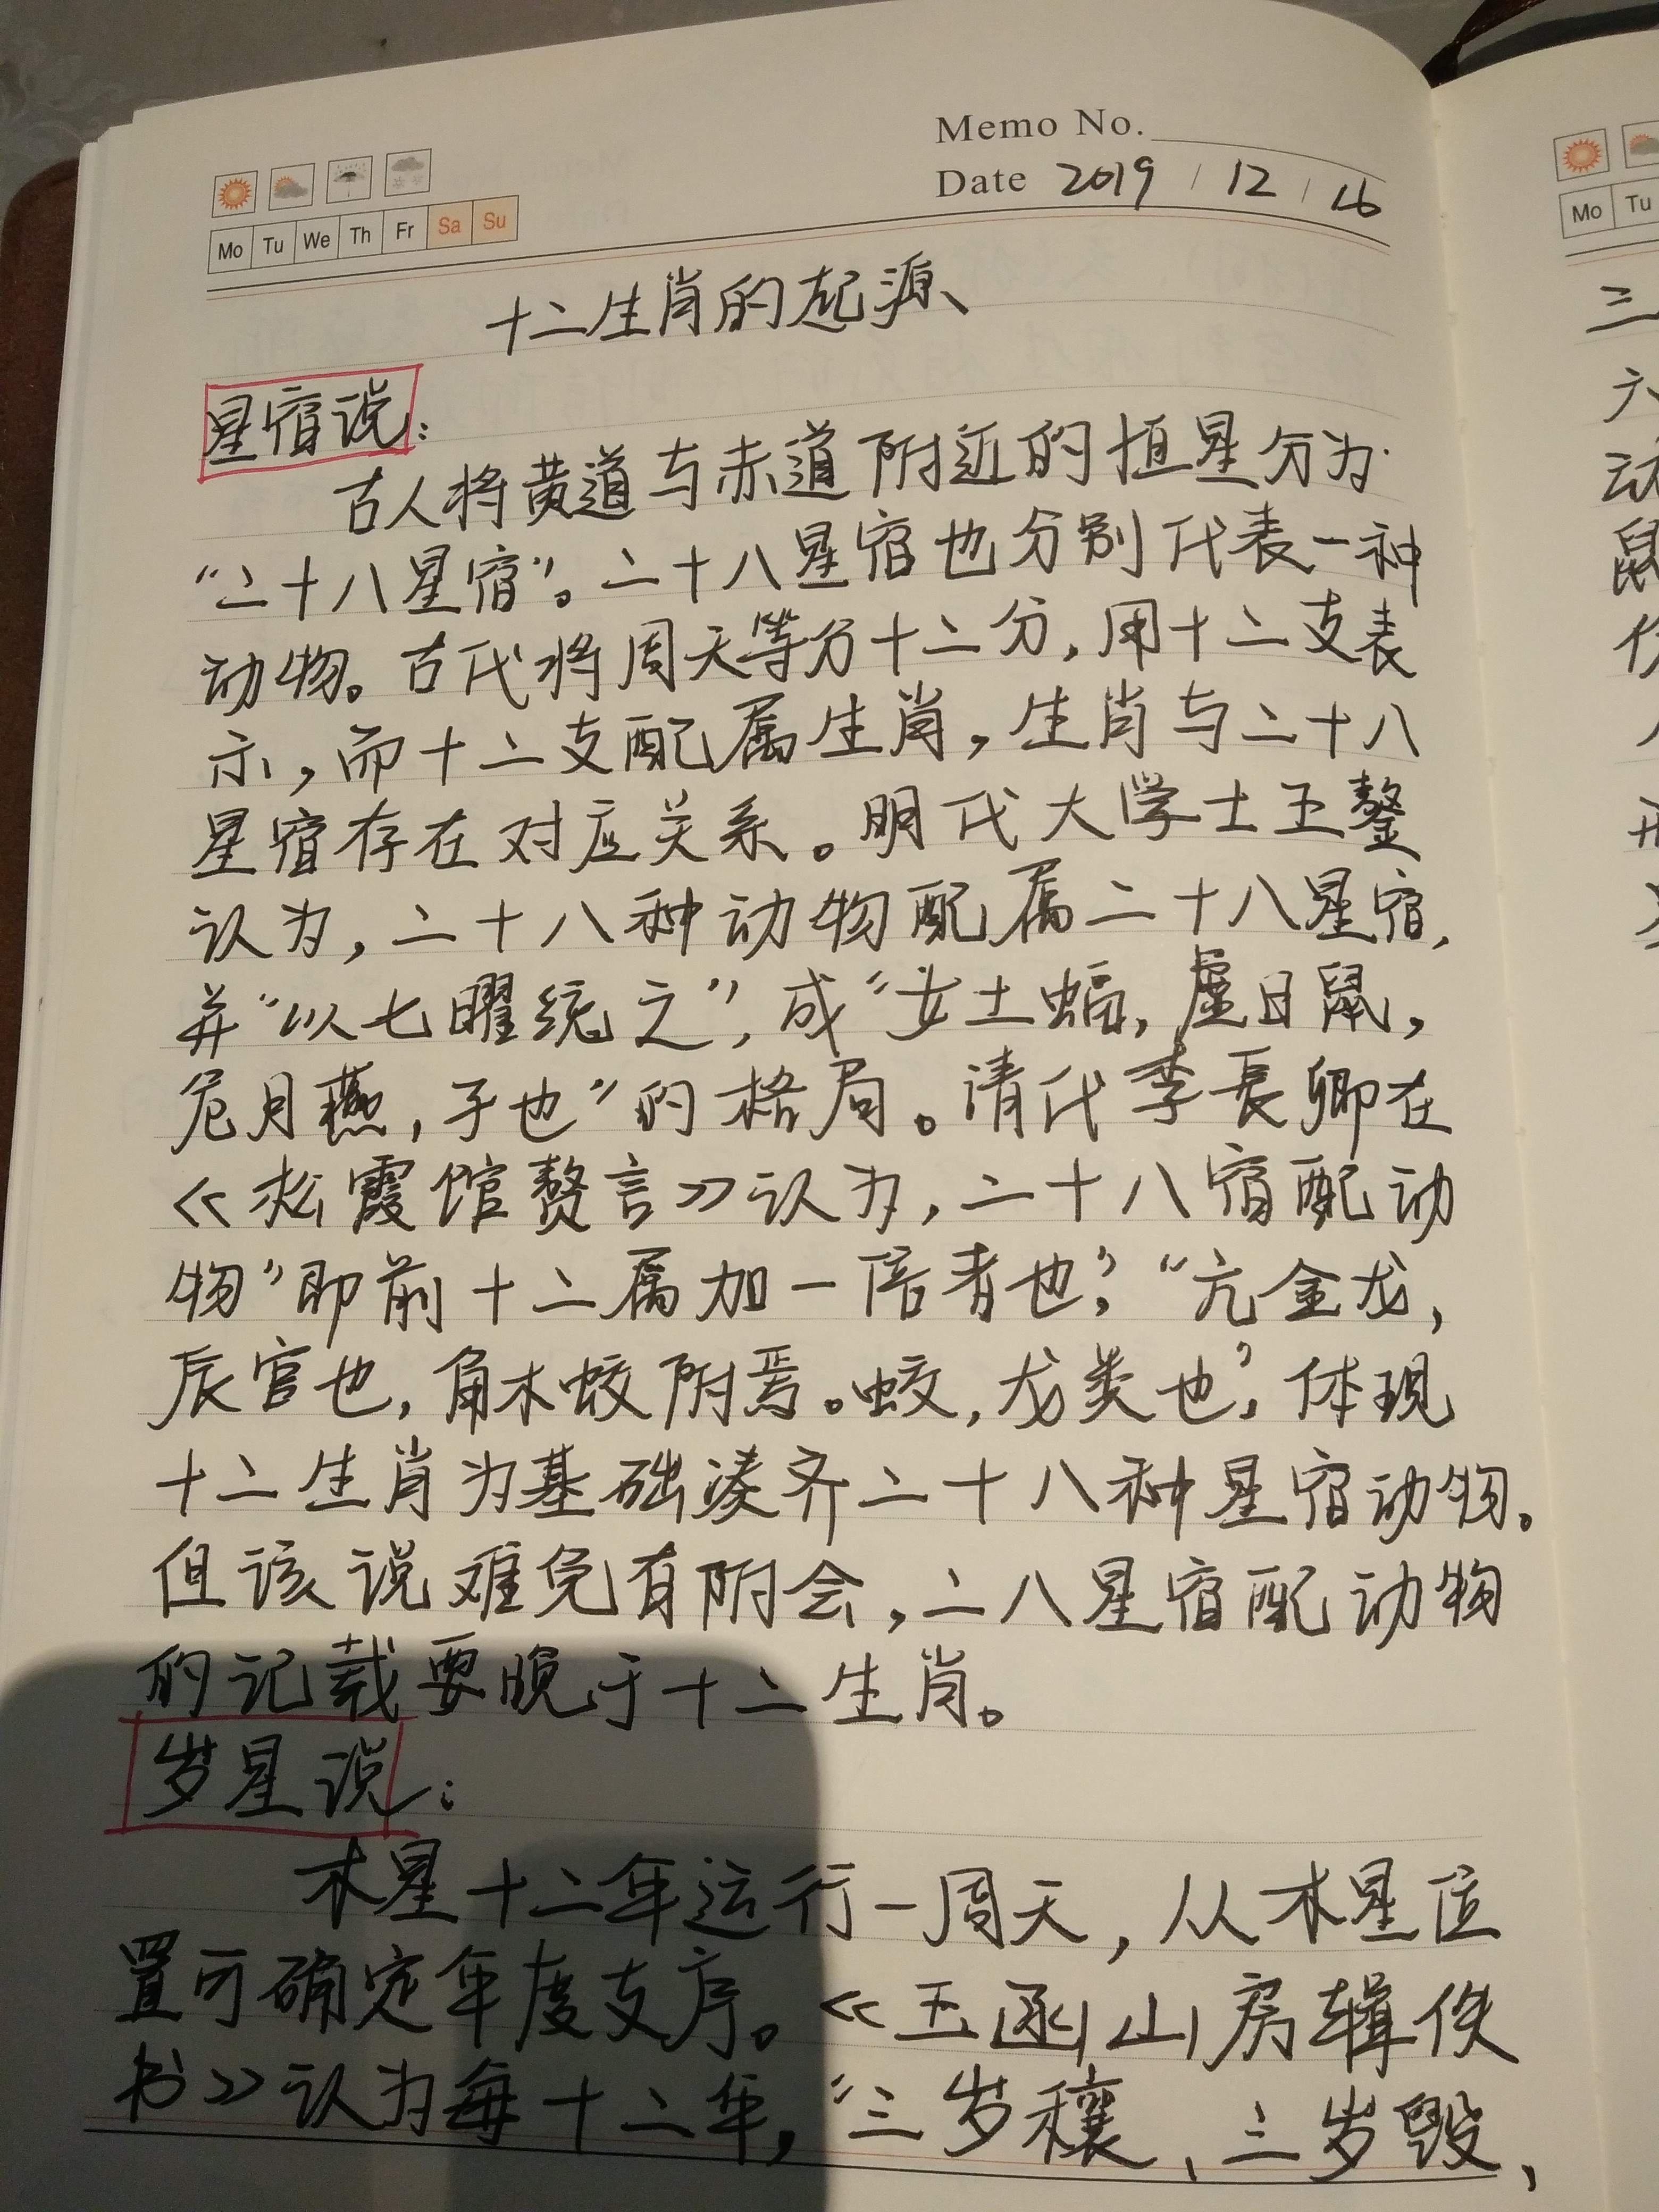 Memo No.
Date 2019 / 12 / 16
Mo Tu We Th Fr Sa Su
十二生肖的起源
星宿说：
古人将黄道与赤道附近的恒星分为
“二十八星宿”。二十八星宿也分别代表一种
动物。古代将周天等分十二分，用十二支表
示，而十二支配属生肖，生肖与二十八
星宿存在对应关系。明代大学士王鏊
认为，二十八种动物配属二十八星宿，
并“以七曜统之”，成“女土蝠，虚日鼠，
危月燕，子也”的格局。清代李長卿在
《松霞馆赘言》认为，二十八宿配动
物“即前十二属加一倍者也”，“亢金龙，
辰宫也，角木蛟附焉。蛟，龙类也”，体现
十二生肖为基础凑齐二十八种星宿动物。
但该说难免有附会，二八星宿配动物
的记载要晚于十二生肖。
岁星说：
木星十二年运行一周天，从木星位
置可确定年度支序。《玉函山房辑佚
书》认为每十二年，“三岁穰、三岁毁、
Mo Tu
三
六
动
鼠